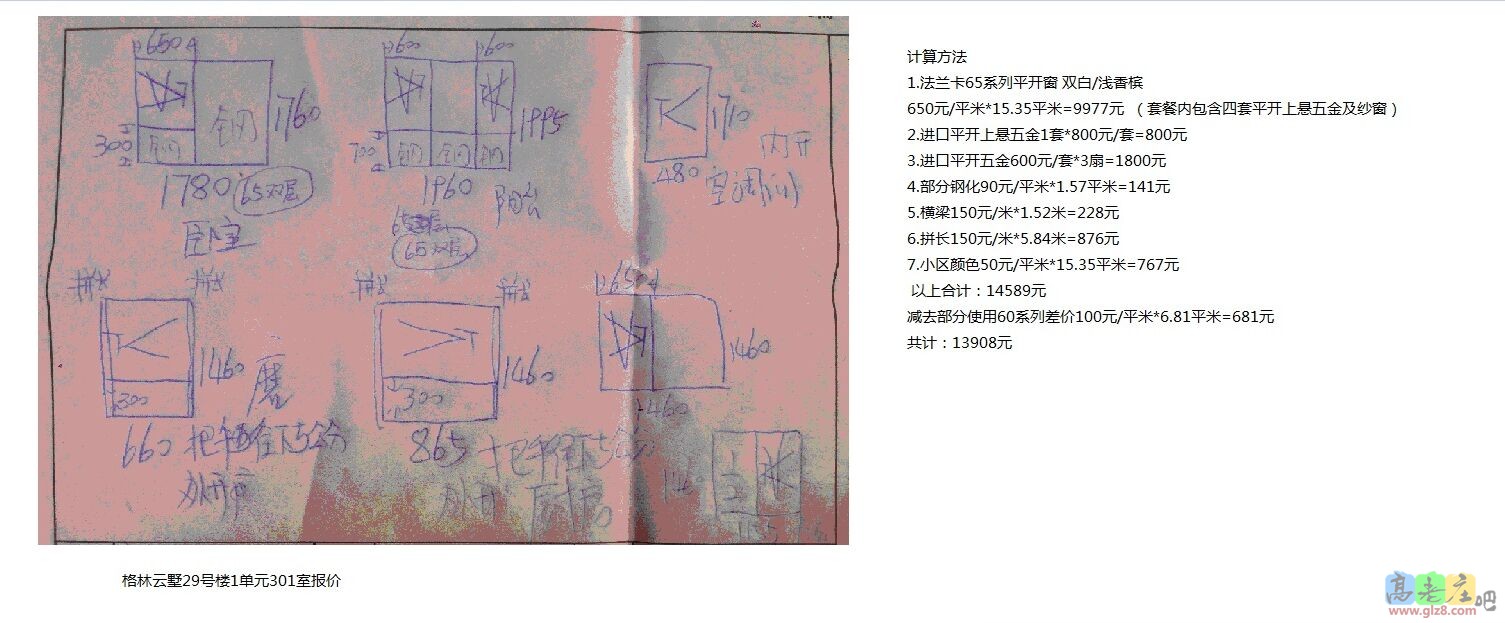 650
600
600
钢
1760
300
钢
1780
65双层
卧室
1995
700
钢
钢
钢
1960
阳台
65双层
1710
480
内开
拼长
拼长
1460
300
660
把手往下5公分
外开
拼长
拼长
1460
300
865
把手往下5公分
外开
650
1460
1460
计算方法
1.法兰卡65系列平开窗 双白/浅香槟
650元/平米*15.35平米=9977元 （套餐内包含四套平开上悬五金及纱窗）
2.进口平开上悬五金1套*800元/套=800元
3.进口平开五金600元/套*3扇=1800元
4.部分钢化90元/平米*1.57平米=141元
5.横梁150元/米*1.52米=228元
6.拼长150元/米*5.84米=876元
7.小区颜色50元/平米*15.35平米=767元
以上合计：14589元
减去部分使用60系列差价100元/平米*6.81平米=681元
共计：13908元
格林云墅29号楼1单元301室报价
高老庄吧
www.glz8.com